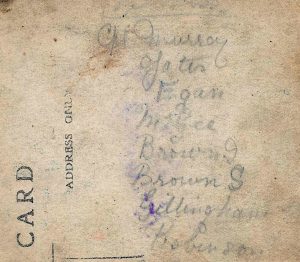 Murray
Yates
Egan
McGee
Brown J
Brown S
Gillingham
Robinson
CARD
ADDRESS ONLY